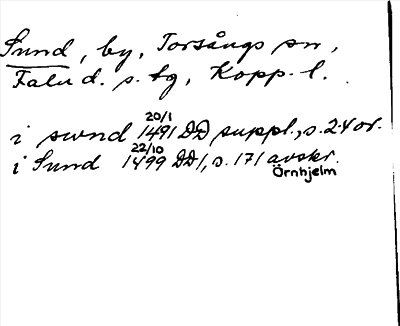 Sund, by, Torsångs sn,
Falu d. s. tg, Kopp. l.
20/1
i swnd 1491 DD suppl., s. 24 or.
22/10
i Sund 1499 DD1, s. 171 avskr.
Örnhjelm